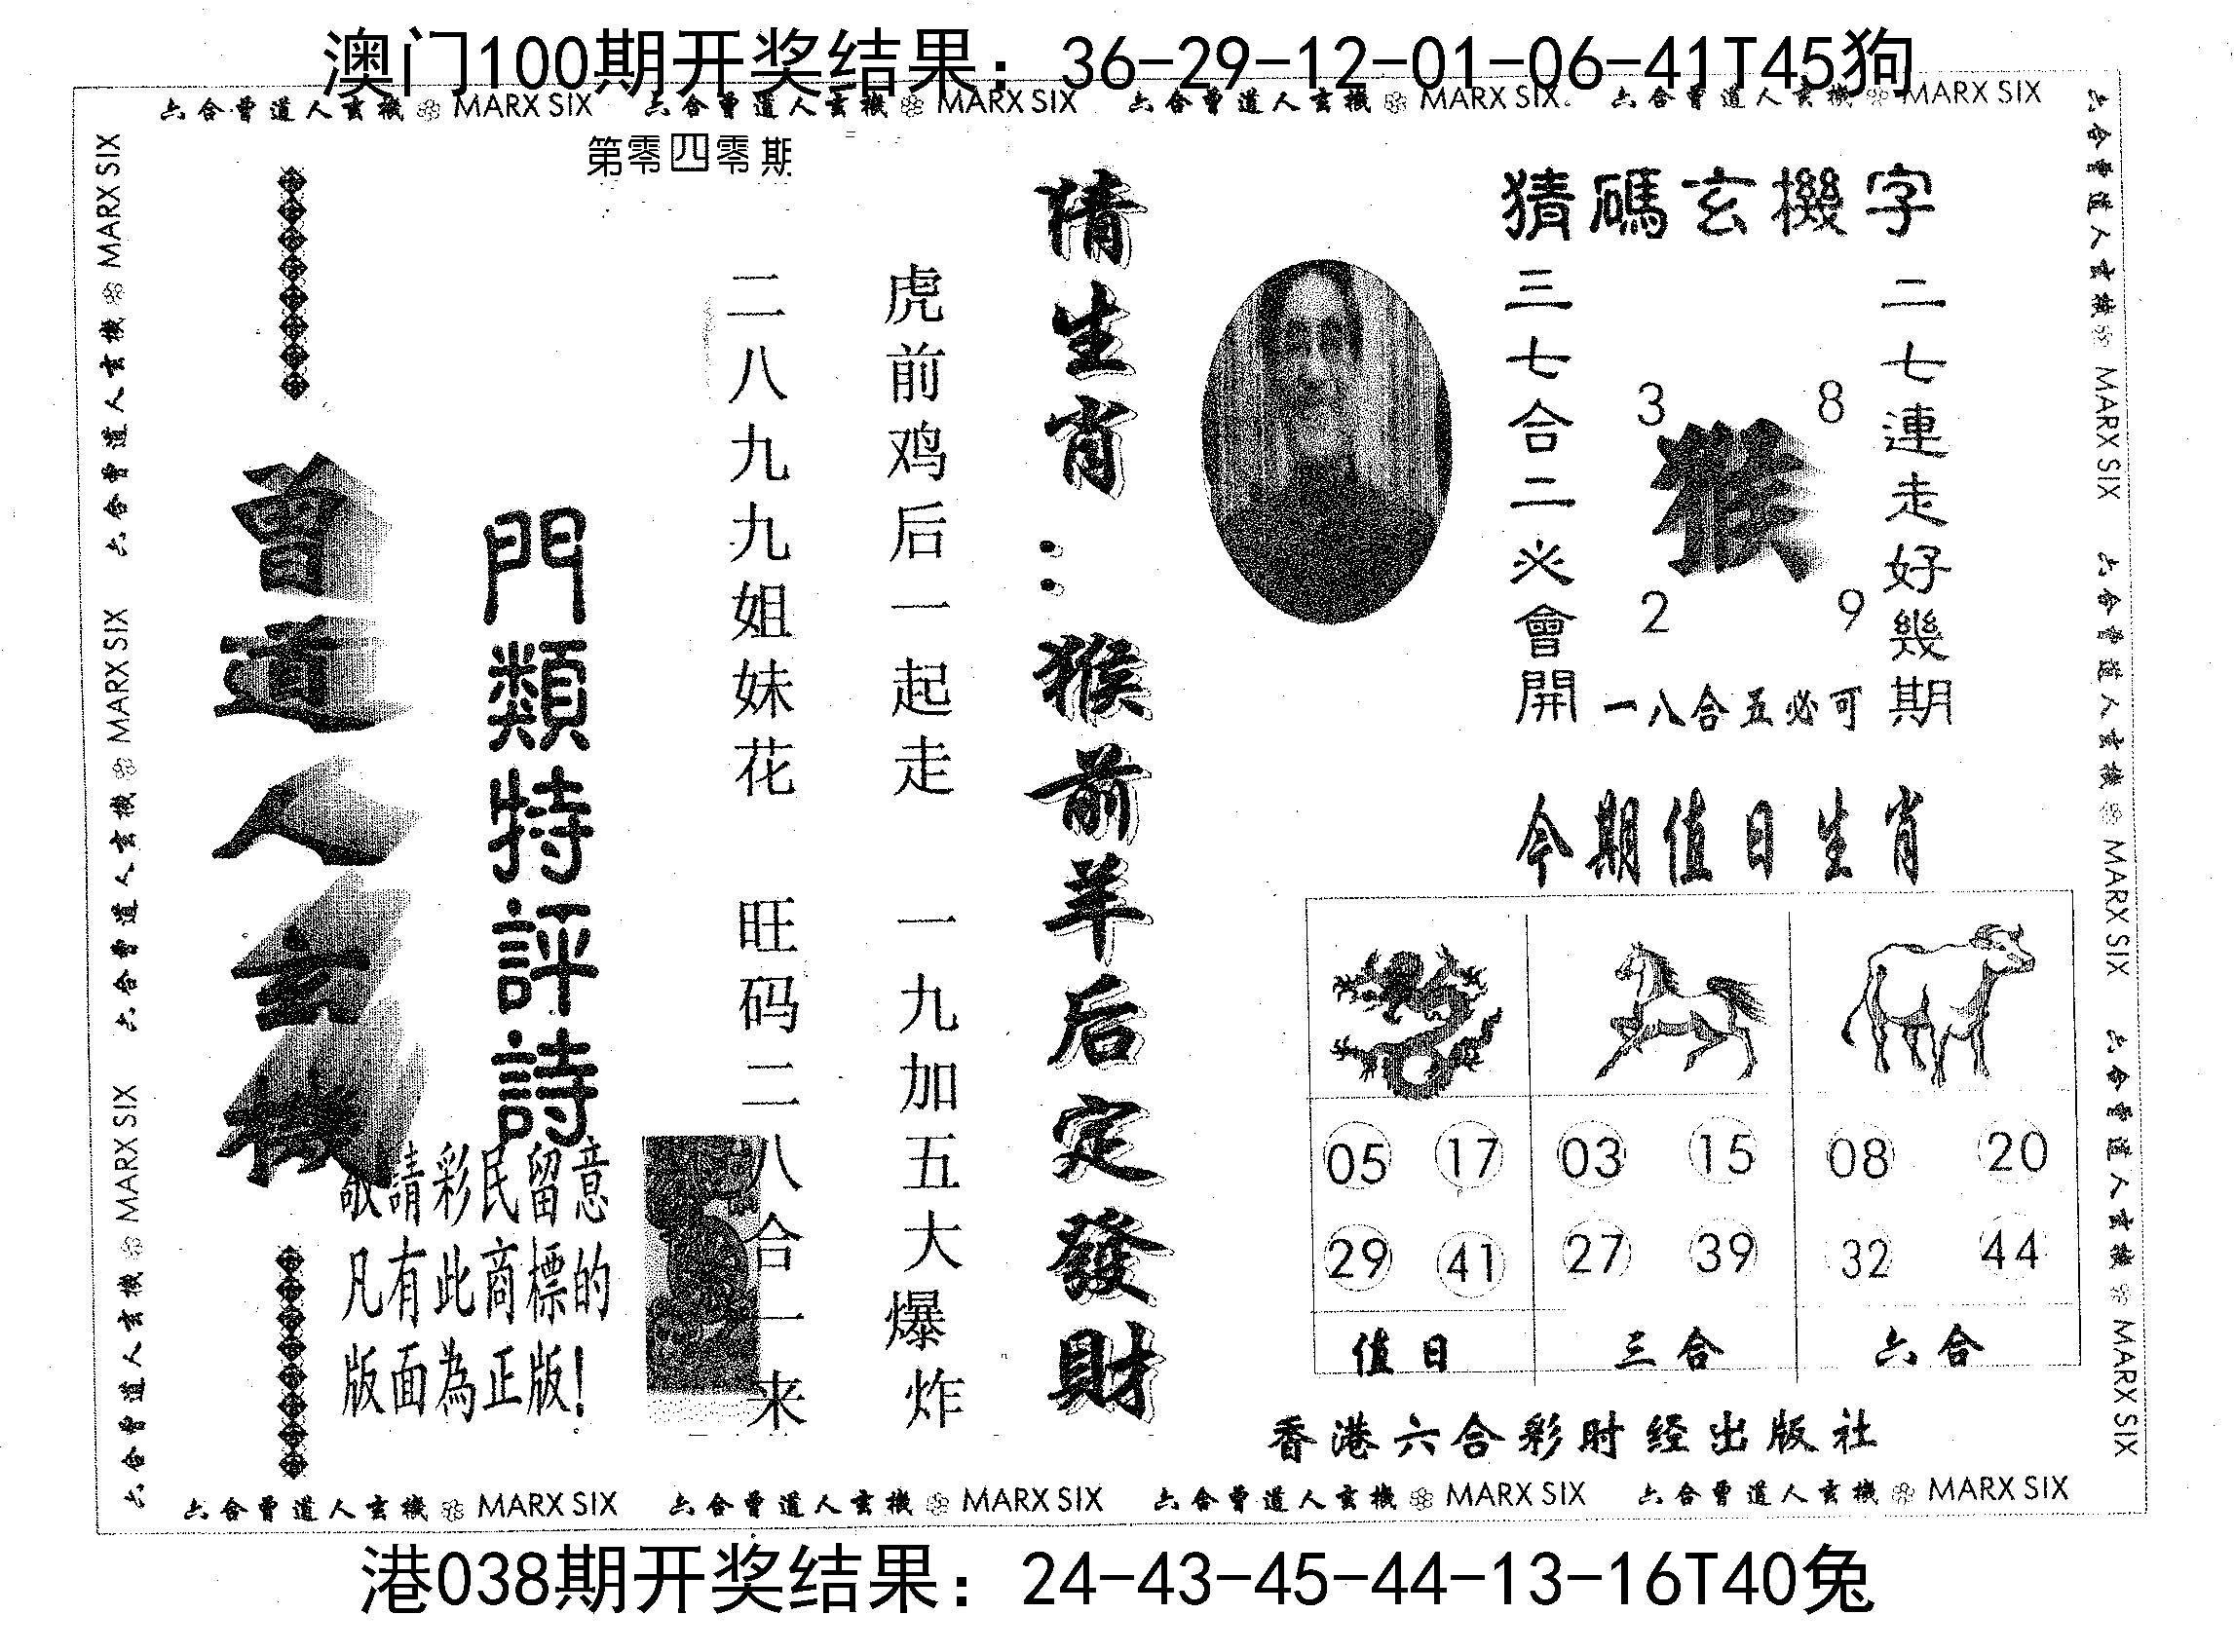 澳门100期开奖结果：36-29-12-01-06-41T45狗
六合曾道人玄機 MARX SIX 六合曾道人玄機 MARX SIX 六合曾道人玄機 MARX SIX 六合曾道人玄機 MARX SIX
第零四零期
猜碼玄機字
二七連走好幾期
3 8
猴
2 9
三七合二必會開
一八合五必可
猜生肖：猴前羊后定發財
虎前鸡后一起走 一九加五大爆炸
二八九九姐妹花 旺码二八合一来
門類特評詩
曾道人玄機
敬請彩民留意
凡有此商標的
版面為正版！
今期值日生肖
05 17 03 15 08 20
29 41 27 39 32 44
值日 三合 六合
香港六合彩时经出版社
六合曾道人玄機 MARX SIX 六合曾道人玄機 MARX SIX 六合曾道人玄機 MARX SIX
六合曾道人玄機 MARX SIX 六合曾道人玄機 MARX SIX 六合曾道人玄機 MARX SIX
六合曾道人玄機 MARX SIX 六合曾道人玄機 MARX SIX 六合曾道人玄機 MARX SIX 六合曾道人玄機 MARX SIX
港038期开奖结果：24-43-45-44-13-16T40兔